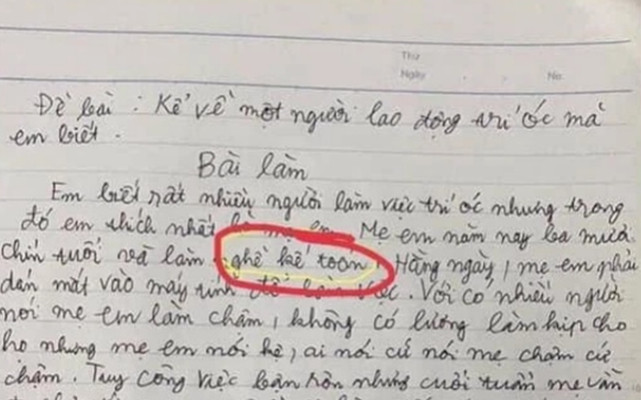 Thứ
Ngày . . No.
Đề bài : Kể về một người lao động trí óc mà
em biết.
Bài làm
Em biết rất nhiều người làm việc trí óc nhưng trong
đó em thích nhất là mẹ em. Mẹ em năm nay ba mươi
chín tuổi và làm nghề kế toán. Hằng ngày, mẹ em phải
dán mắt vào máy tính để làm việc. Với có nhiều người
nói mẹ em làm chậm, không có lương làm kịp cho
họ nhưng mẹ em nói kệ, ai nói cứ nói mẹ chậm cứ
chậm. Tuy công việc bận rộn nhưng cuối tuần mẹ vẫn